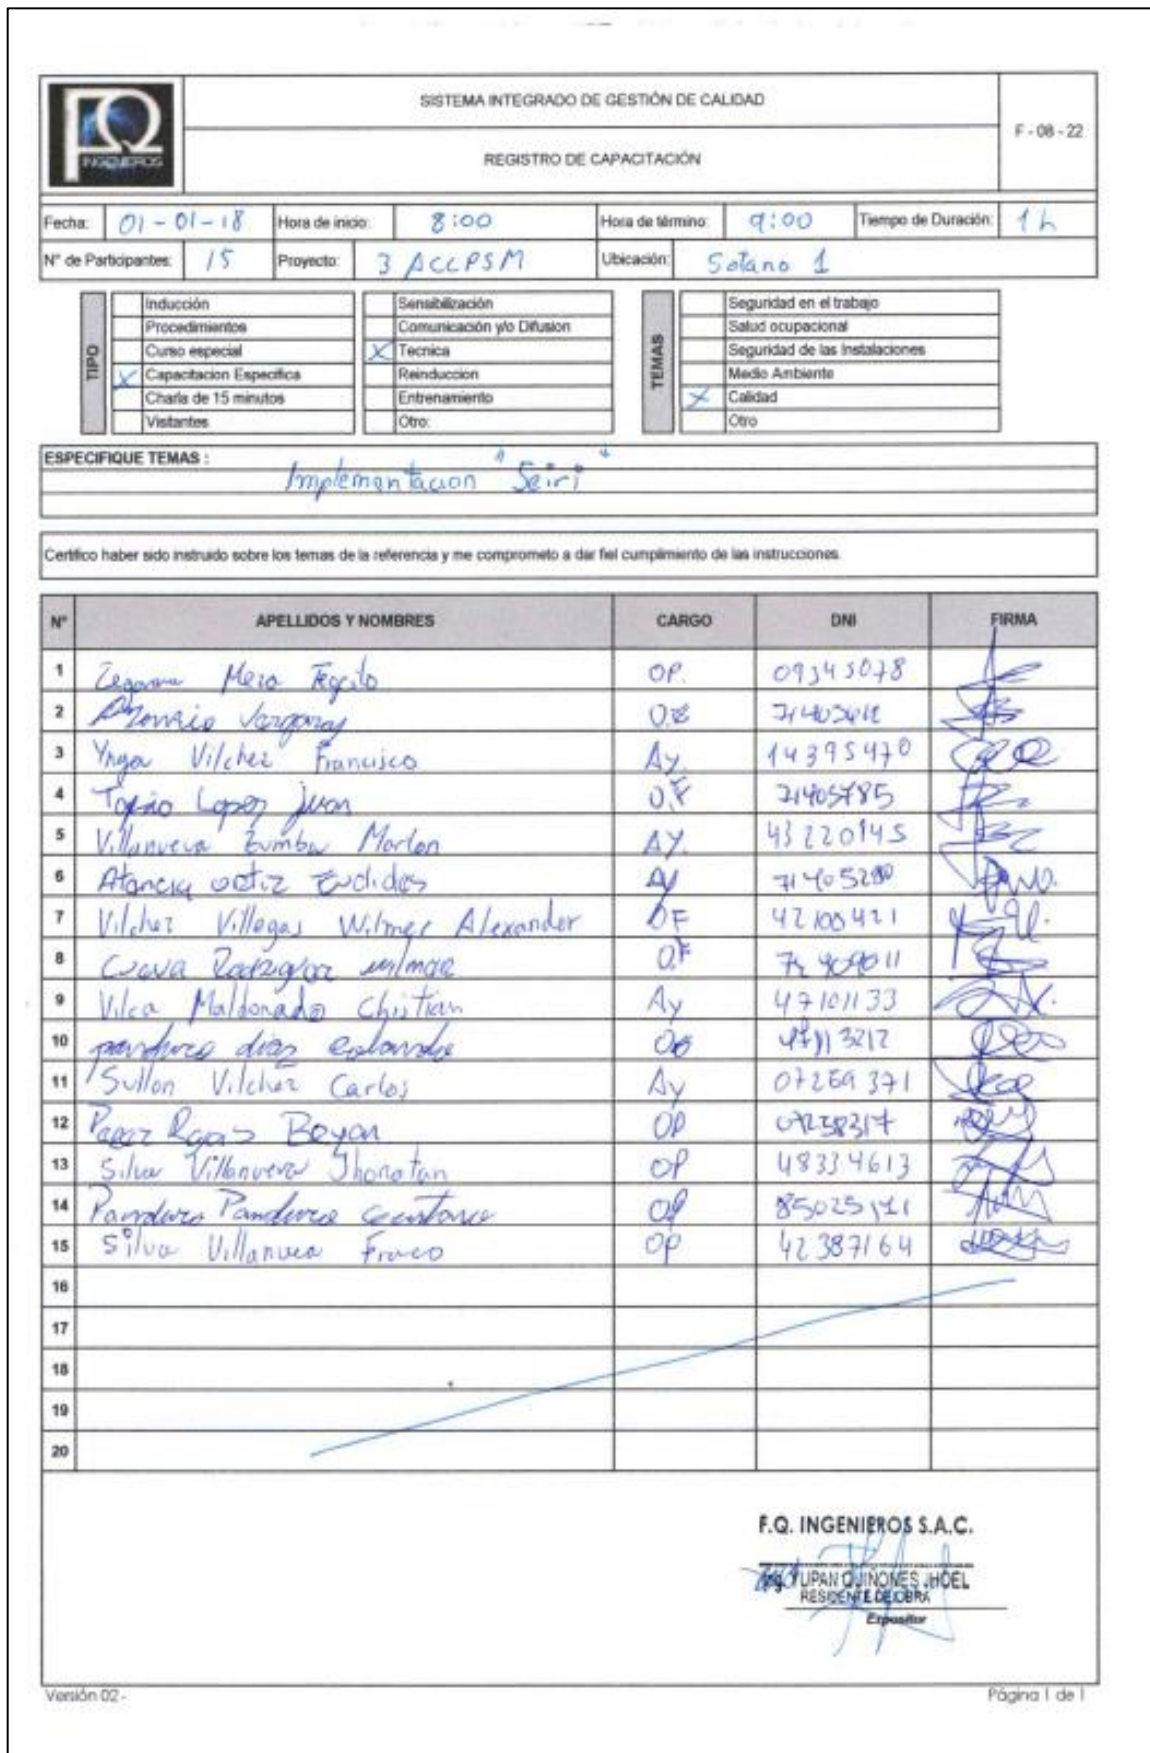 FQ
INGENIEROS
SISTEMA INTEGRADO DE GESTIÓN DE CALIDAD
F - 08 - 22
REGISTRO DE CAPACITACIÓN
Fecha: 01 - 01 - 18 Hora de inicio: 8:00 Hora de término: 9:00 Tiempo de Duración: 1 h
N° de Participantes: 15 Proyecto: 3 ACCPSM Ubicación: Sotano 1
TIPO
Inducción
Procedimientos
Curso especial
X Capacitacion Especifica
Charla de 15 minutos
Visitantes
Sensibilización
Comunicación y/o Difusion
X Tecnica
Reinduccion
Entrenamiento
Otro:
TEMAS
Seguridad en el trabajo
Salud ocupacional
Seguridad de las Instalaciones
Medio Ambiente
X Calidad
Otro
ESPECIFIQUE TEMAS :
Implementacion "Seiri"
Certifico haber sido instruido sobre los temas de la referencia y me comprometo a dar fiel cumplimiento de las instrucciones.
N° APELLIDOS Y NOMBRES CARGO DNI FIRMA
1 OP. 09345078
2 Vergaray
3 Ynga Vilchez Francisco Ay. 14395470
4 Lopez Juan O.F 71405785
5 Villanueva Zumba Marlon AY. 43220945
6 Atancia Ay
7 Vilchez Villegas Wilmer Alexander OF 42100421
8 Cueva O.F
9 Vilca Maldonado Chistian Ay 47101133
10 panduro diaz
11 Sullon Vilchez Carlos Ay 07269371
12 OP
13 Silva Villanueva Jhonatan OP 48334613
14 Panduro Panduro OP
15 Silva Villanueva OP 42387164
16
17
18
19
20
F.Q. INGENIEROS S.A.C.
Ing. YUPAN QUIÑONES JHOEL
RESIDENTE DE OBRA
Expositor
Versión 02 - Página 1 de 1